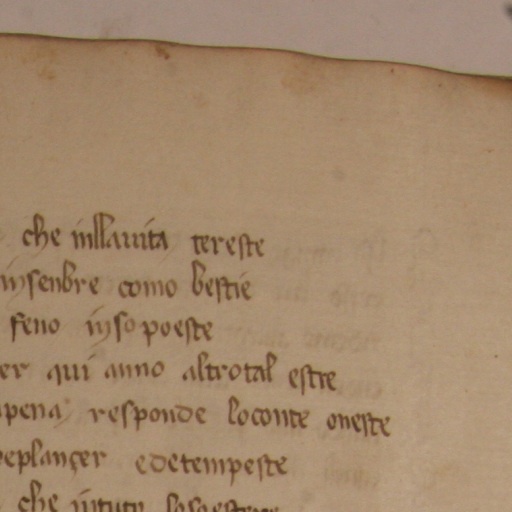 che inllauita tereste
insenbre como bestie
feno inso poeste
er qui anno altrotal estre
pena responde loconte oneste
replançer edetempeste
che